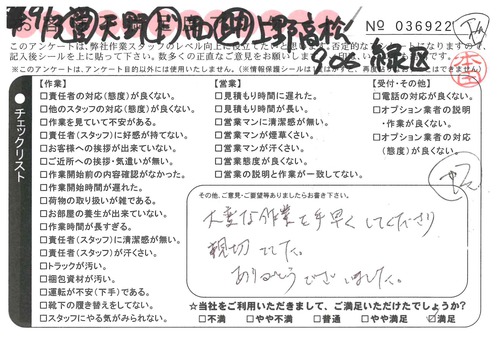 天野
上野高松
緑区
№ 036922
このアンケートは、弊社作業スタッフのレベル向上に役立てたいと思います。否定的な
記入後シールを上に貼って下さい。数多くの正直なご意見をお願いします。
※このアンケートは、アンケート目的以外には使用いたしません。(※情報保護シールは
チェックリスト
【作業】
□責任者の対応(態度)が良くない。
□他のスタッフの対応(態度)が良くない。
□作業を見ていて不安がある。
□責任者(スタッフ)に好感が持てない。
□お客様への挨拶が出来ていない。
□ご近所への挨拶・気遣いが無い。
□作業開始前の内容確認がなかった。
□作業開始時間が遅れた。
□荷物の取り扱いが雑である。
□お部屋の養生が出来ていない。
□作業時間が長すぎる。
□責任者(スタッフ)に清潔感が無い。
□責任者(スタッフ)が汗くさい。
□トラックが汚い。
□梱包資材が汚い。
□運転が不安(下手)である。
□靴下の履き替えをしてない。
□スタッフにやる気がみられない。
【営業】
□見積もり時間に遅れた。
□見積もり時間が長い。
□営業マンに清潔感が無い。
□営業マンが煙草くさい。
□営業マンが汗くさい。
□営業態度が良くない。
□営業の説明と作業が一致してない。
【受付・その他】
□電話の対応が良くない。
□オプション業者の説明
・作業が良くない。
□オプション業者の対応
(態度)が良くない。
その他、ご意見・ご要望等ありましたらお書き下さい。
大変な作業を手早くしてくださり
親切でした。
ありがとうございました。
☆当社をご利用いただきまして、ご満足いただけたでしょうか?
□不満 □やや不満 □普通 □やや満足 ☑満足